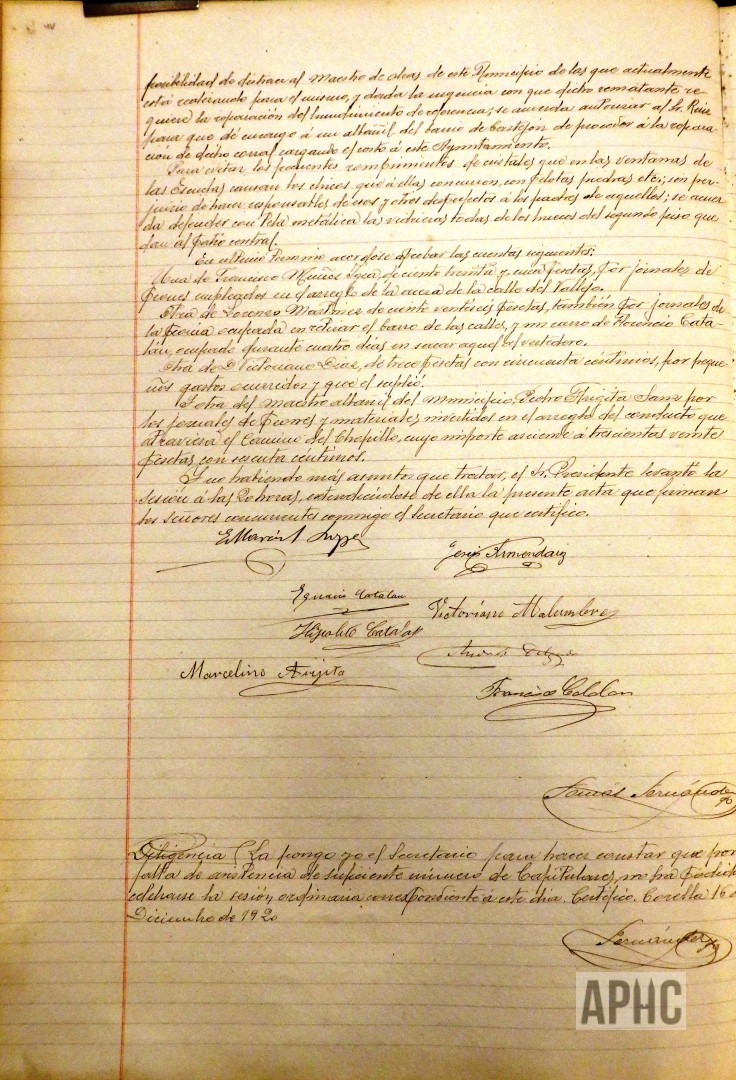 posibilidad de distraer al Maestro de obras de este Municipio de las que actualmente
está realizando para el mismo, y dada la urgencia con que dicho rematante re-
quiere la reparación del hundimiento de referencia; se acuerda autorizar al Sr. Ruiz
para que dé encargo á un albañil del barrio de Castejón de proceder á la repara-
ción de dicho corral cargando el costo á este Ayuntamiento.
Para evitar los frecuentes rompimientos de cristales que en las ventanas de
las Escuelas causan los chicos que á ellas concurren, con pelotas piedras etc.; son per-
juicio de hacer responsables de esos y otros desperfectos á los padres de aquellos; se acuer-
da defender con tela metálica las vidrieras todas de los huecos del segundo piso que
dan al patio central.
acordose aprobar las cuentas siguientes:
Una de Francisco Muñoz de ciento treinta y una pesetas, por jornales de
peones empleados en el arreglo de la acera de la calle del Vallejo.
Otra de Lorenzo Martínez de ciento veintiseis pesetas, también por jornales de
la peonía ocupada en retirar el barro de las calles, y un carro de Florencio Cata-
lán, ocupado durante cuatro días en sacar aquel al vertedero.
Otra de D. Victoriano Díaz, de trece pesetas con cincuenta céntimos, por peque-
ños gastos ocurridos y que el suplió.
Y otra del maestro albañil del municipio, Pedro Argita Sanz por
los jornales de peones y materiales invertidos en el arreglo del conducto que
atraviesa el Camino del Chopillo, cuyo importe asciende á trescientas veinte
pesetas con sesenta céntimos.
Y no habiendo más asuntos que tratar, el Sr. Presidente levantó la
sesión á las 20 horas, extendiéndose de ella la presente acta que firman
los señores concurrentes conmigo el Secretario que certifico.
Jesús Armendariz
Ignacio Catalan
Victoriano Malumbres
Hipolito Catalan
Marcelino Argita
Francisco Catalan
Tomás Fernández
Diligencia (La pongo yo el Secretario para hacer constar que por
falta de asistencia de suficiente número de Capitulares, no ha podido
celebrarse la sesión ordinaria correspondiente á este dia. Certifico. Corella 16 d
Diciembre de 1920
Fernández
APHC